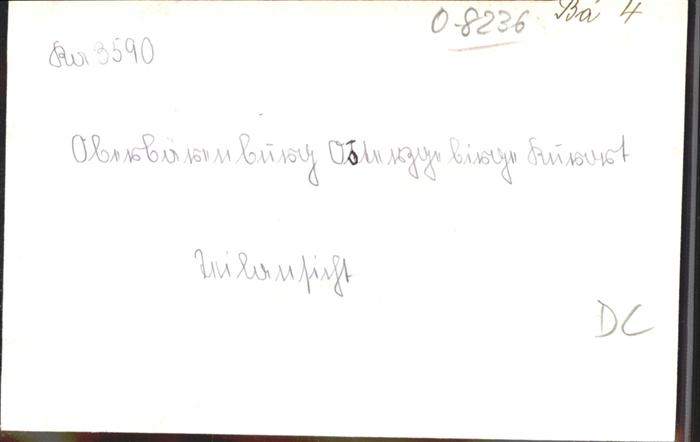 O-8236 Bä 4
Kur 3590
Oberbärenburg Osterzgebirge Kurort
Teilansicht
DC